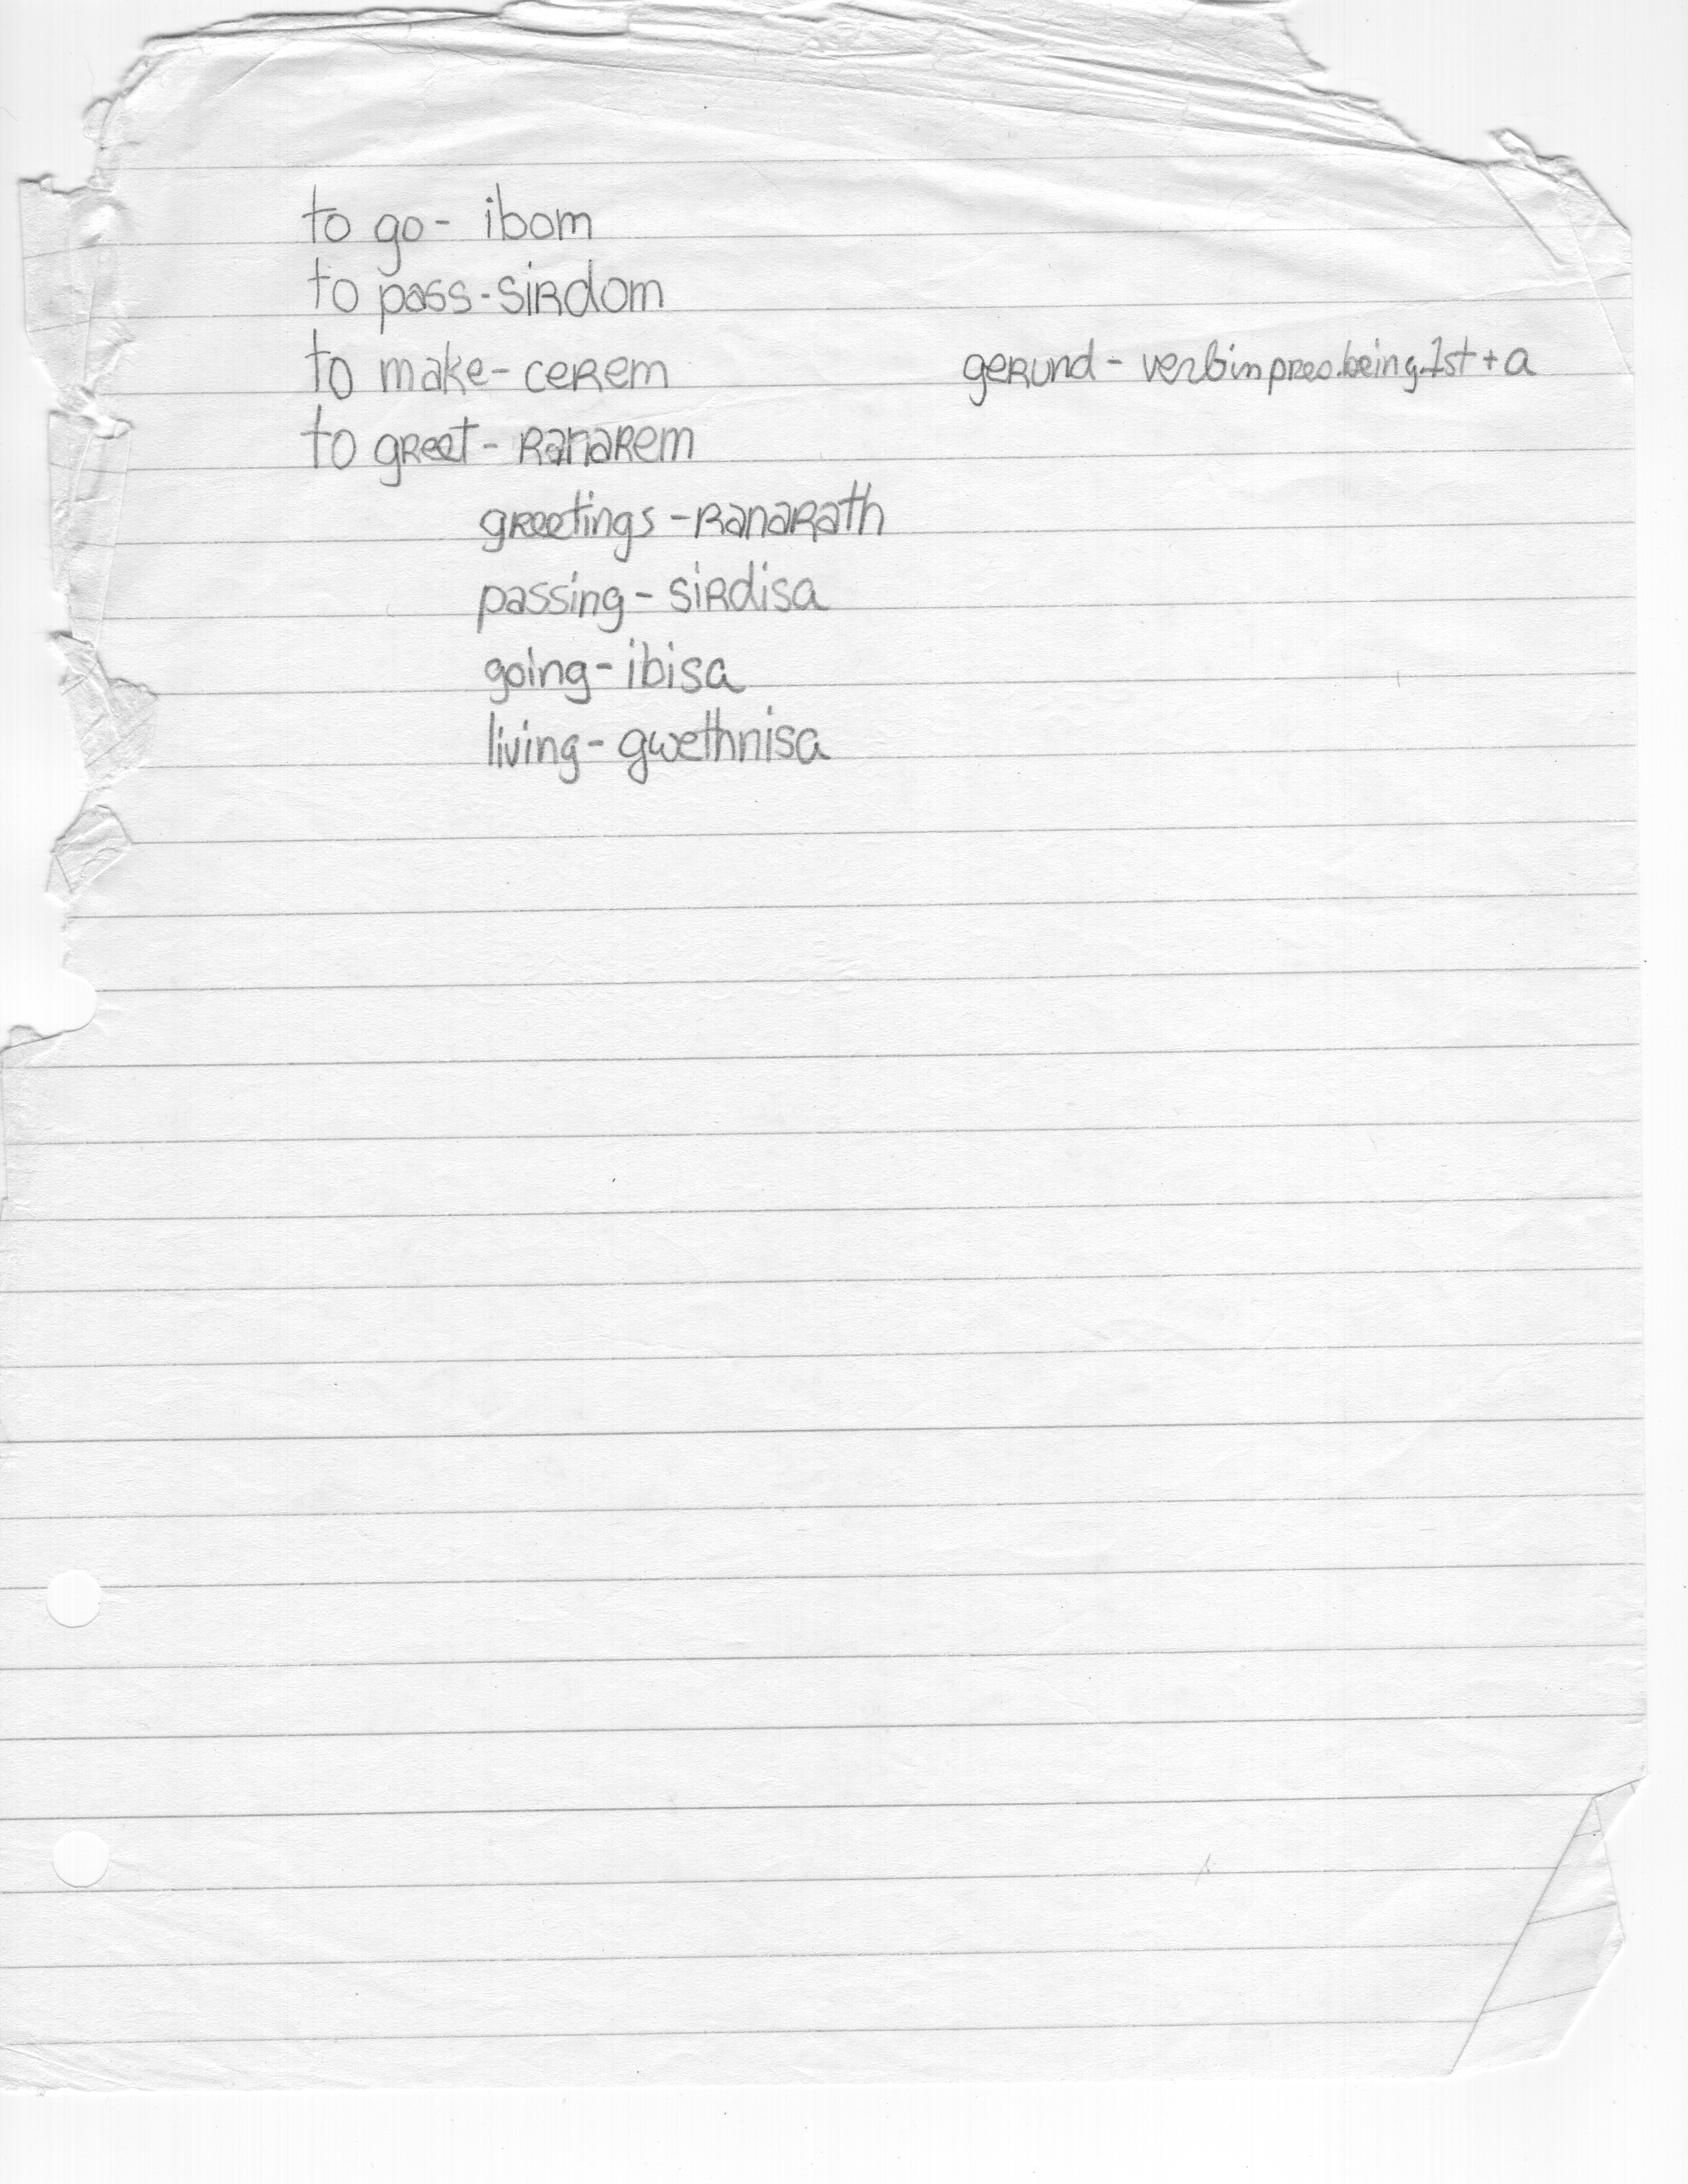 to go - ibom
to pass - sirdom
to make - cerem
gerund - verb in pres. being 1st + a
to greet - ranarem
greetings - ranarath
passing - sirdisa
going - ibisa
living - gwethnisa